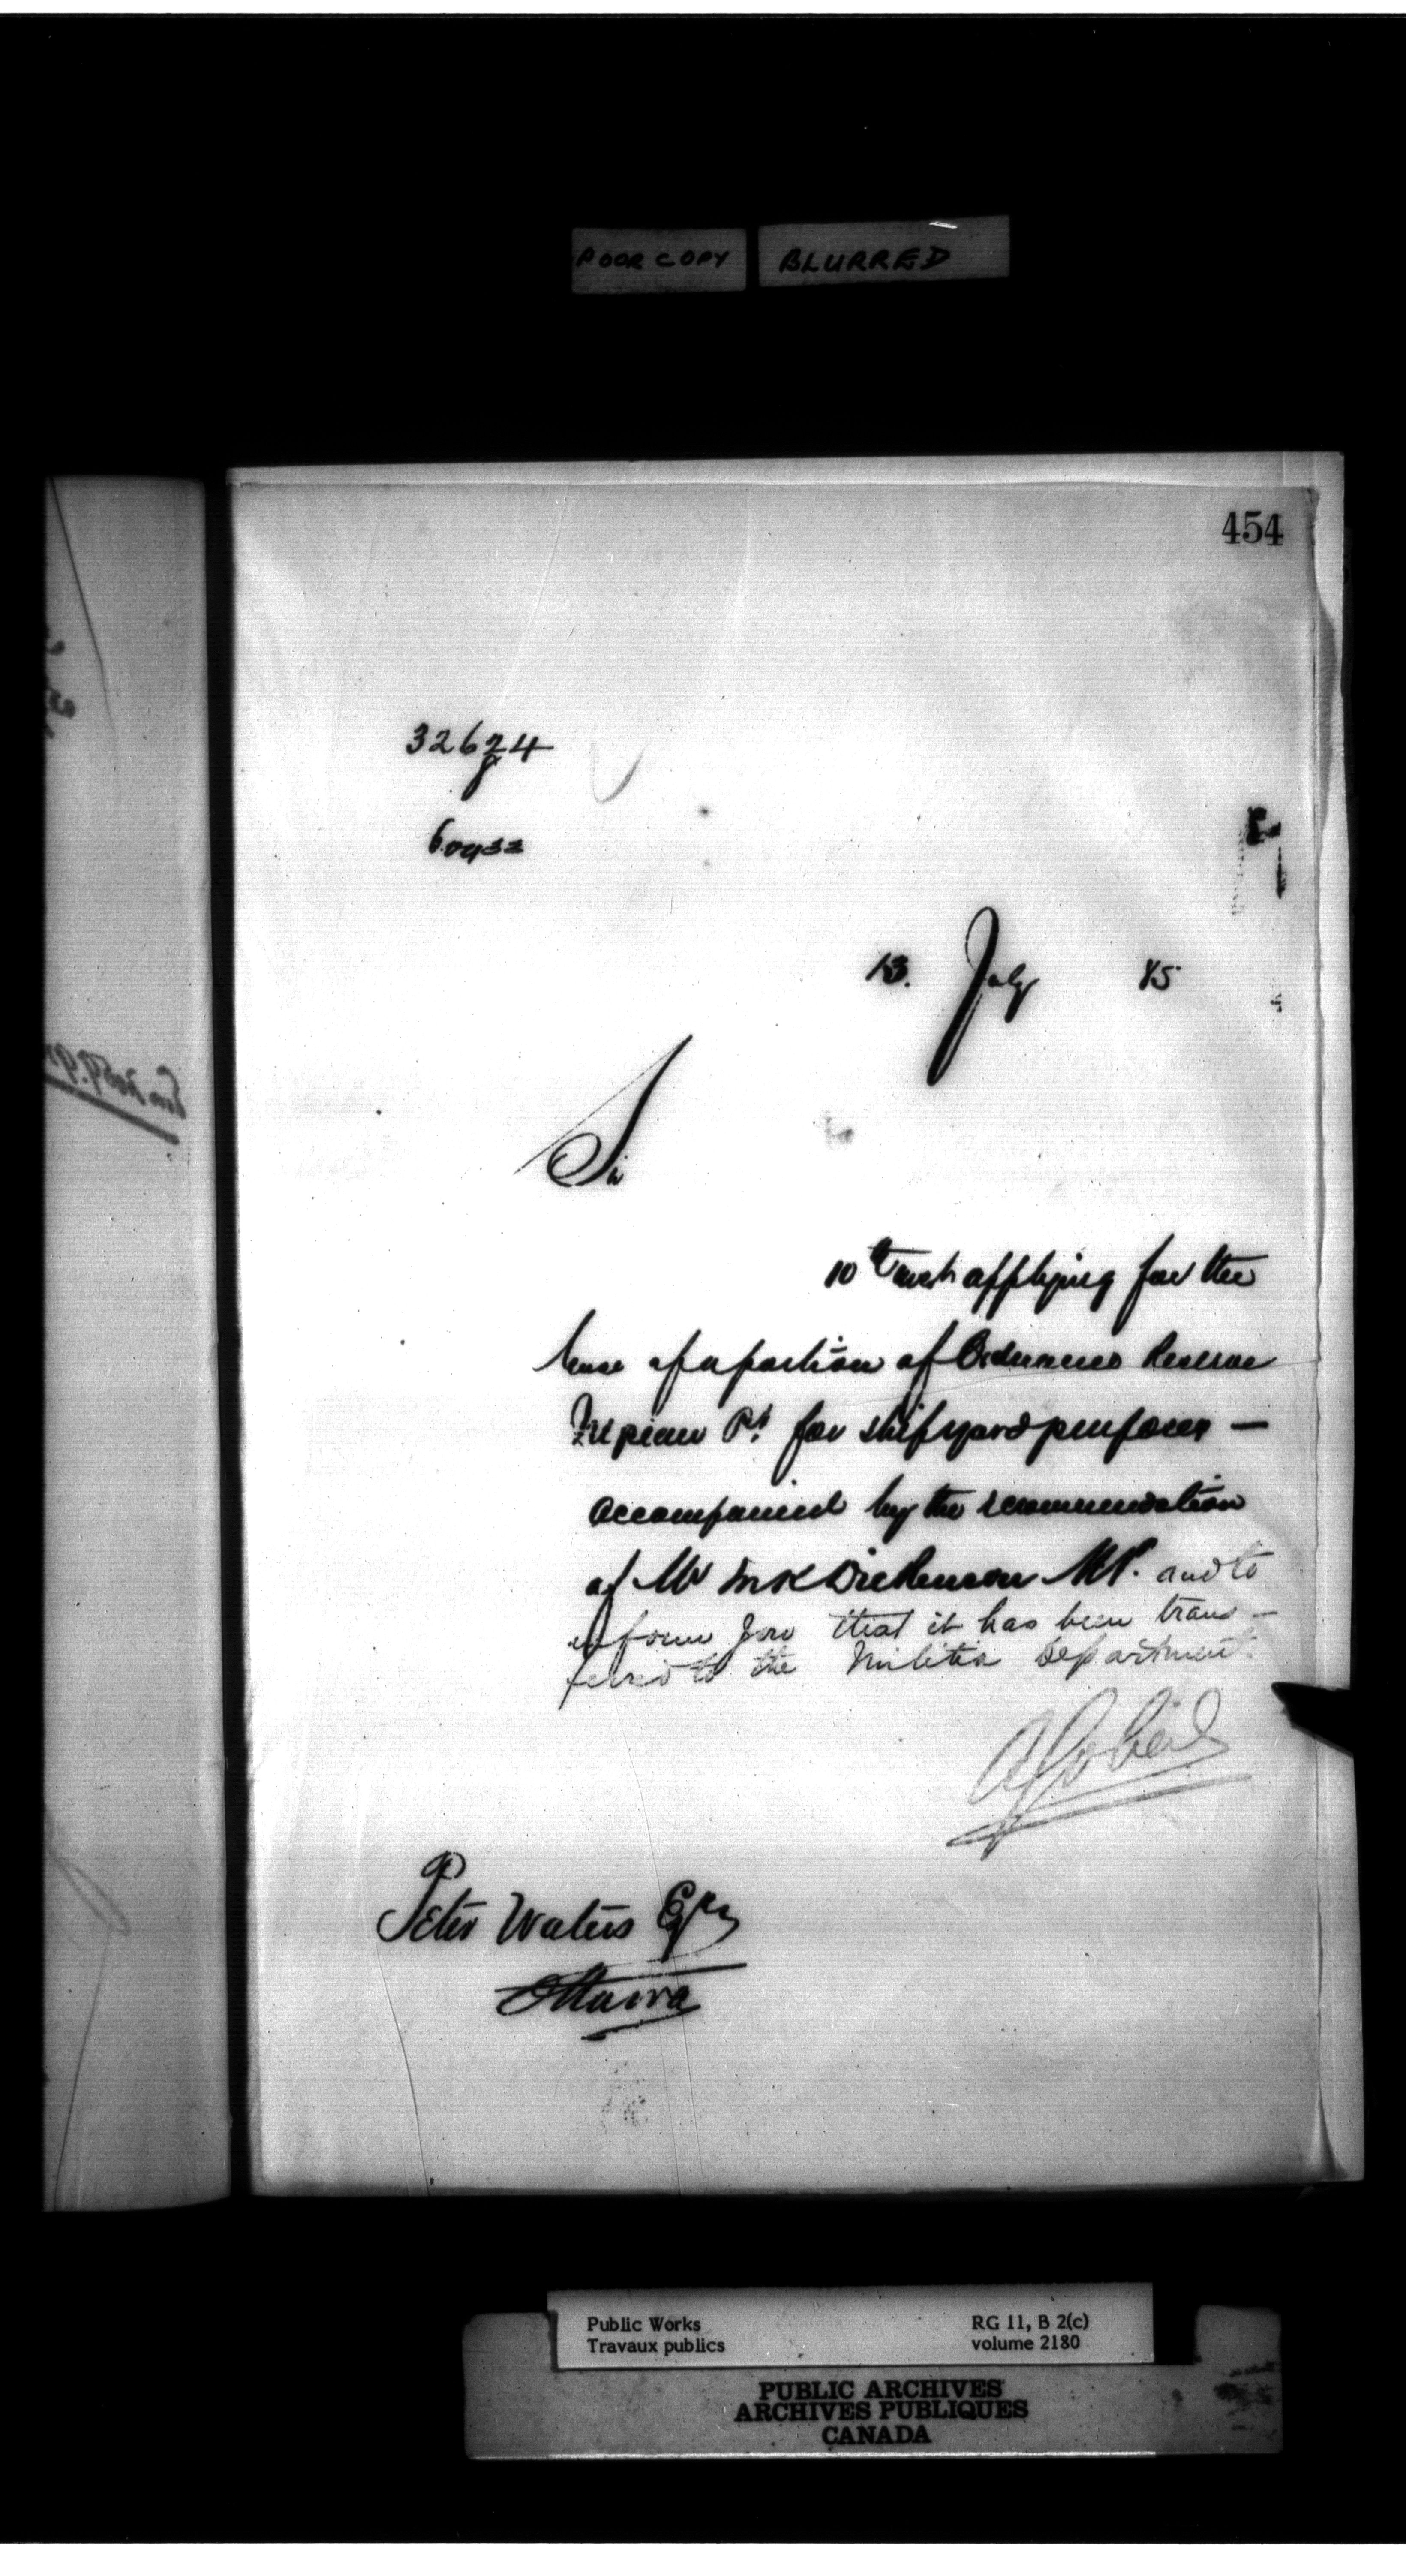 POOR COPY BLURRED
454
32624
60933
13. July 85
Sir
10th inst applying for the
lease of a portion of Ordnance Reserve
Nepean Pt. for shipyard purposes —
accompanied by the recommendation
of Mr Dickenson MP. and to
inform you that it has been trans-
ferred to the Militia Department.
A Gobeil
Peter Waters Esq
Ottawa
Public Works RG 11, B 2(c)
Travaux publics volume 2180
PUBLIC ARCHIVES
ARCHIVES PUBLIQUES
CANADA